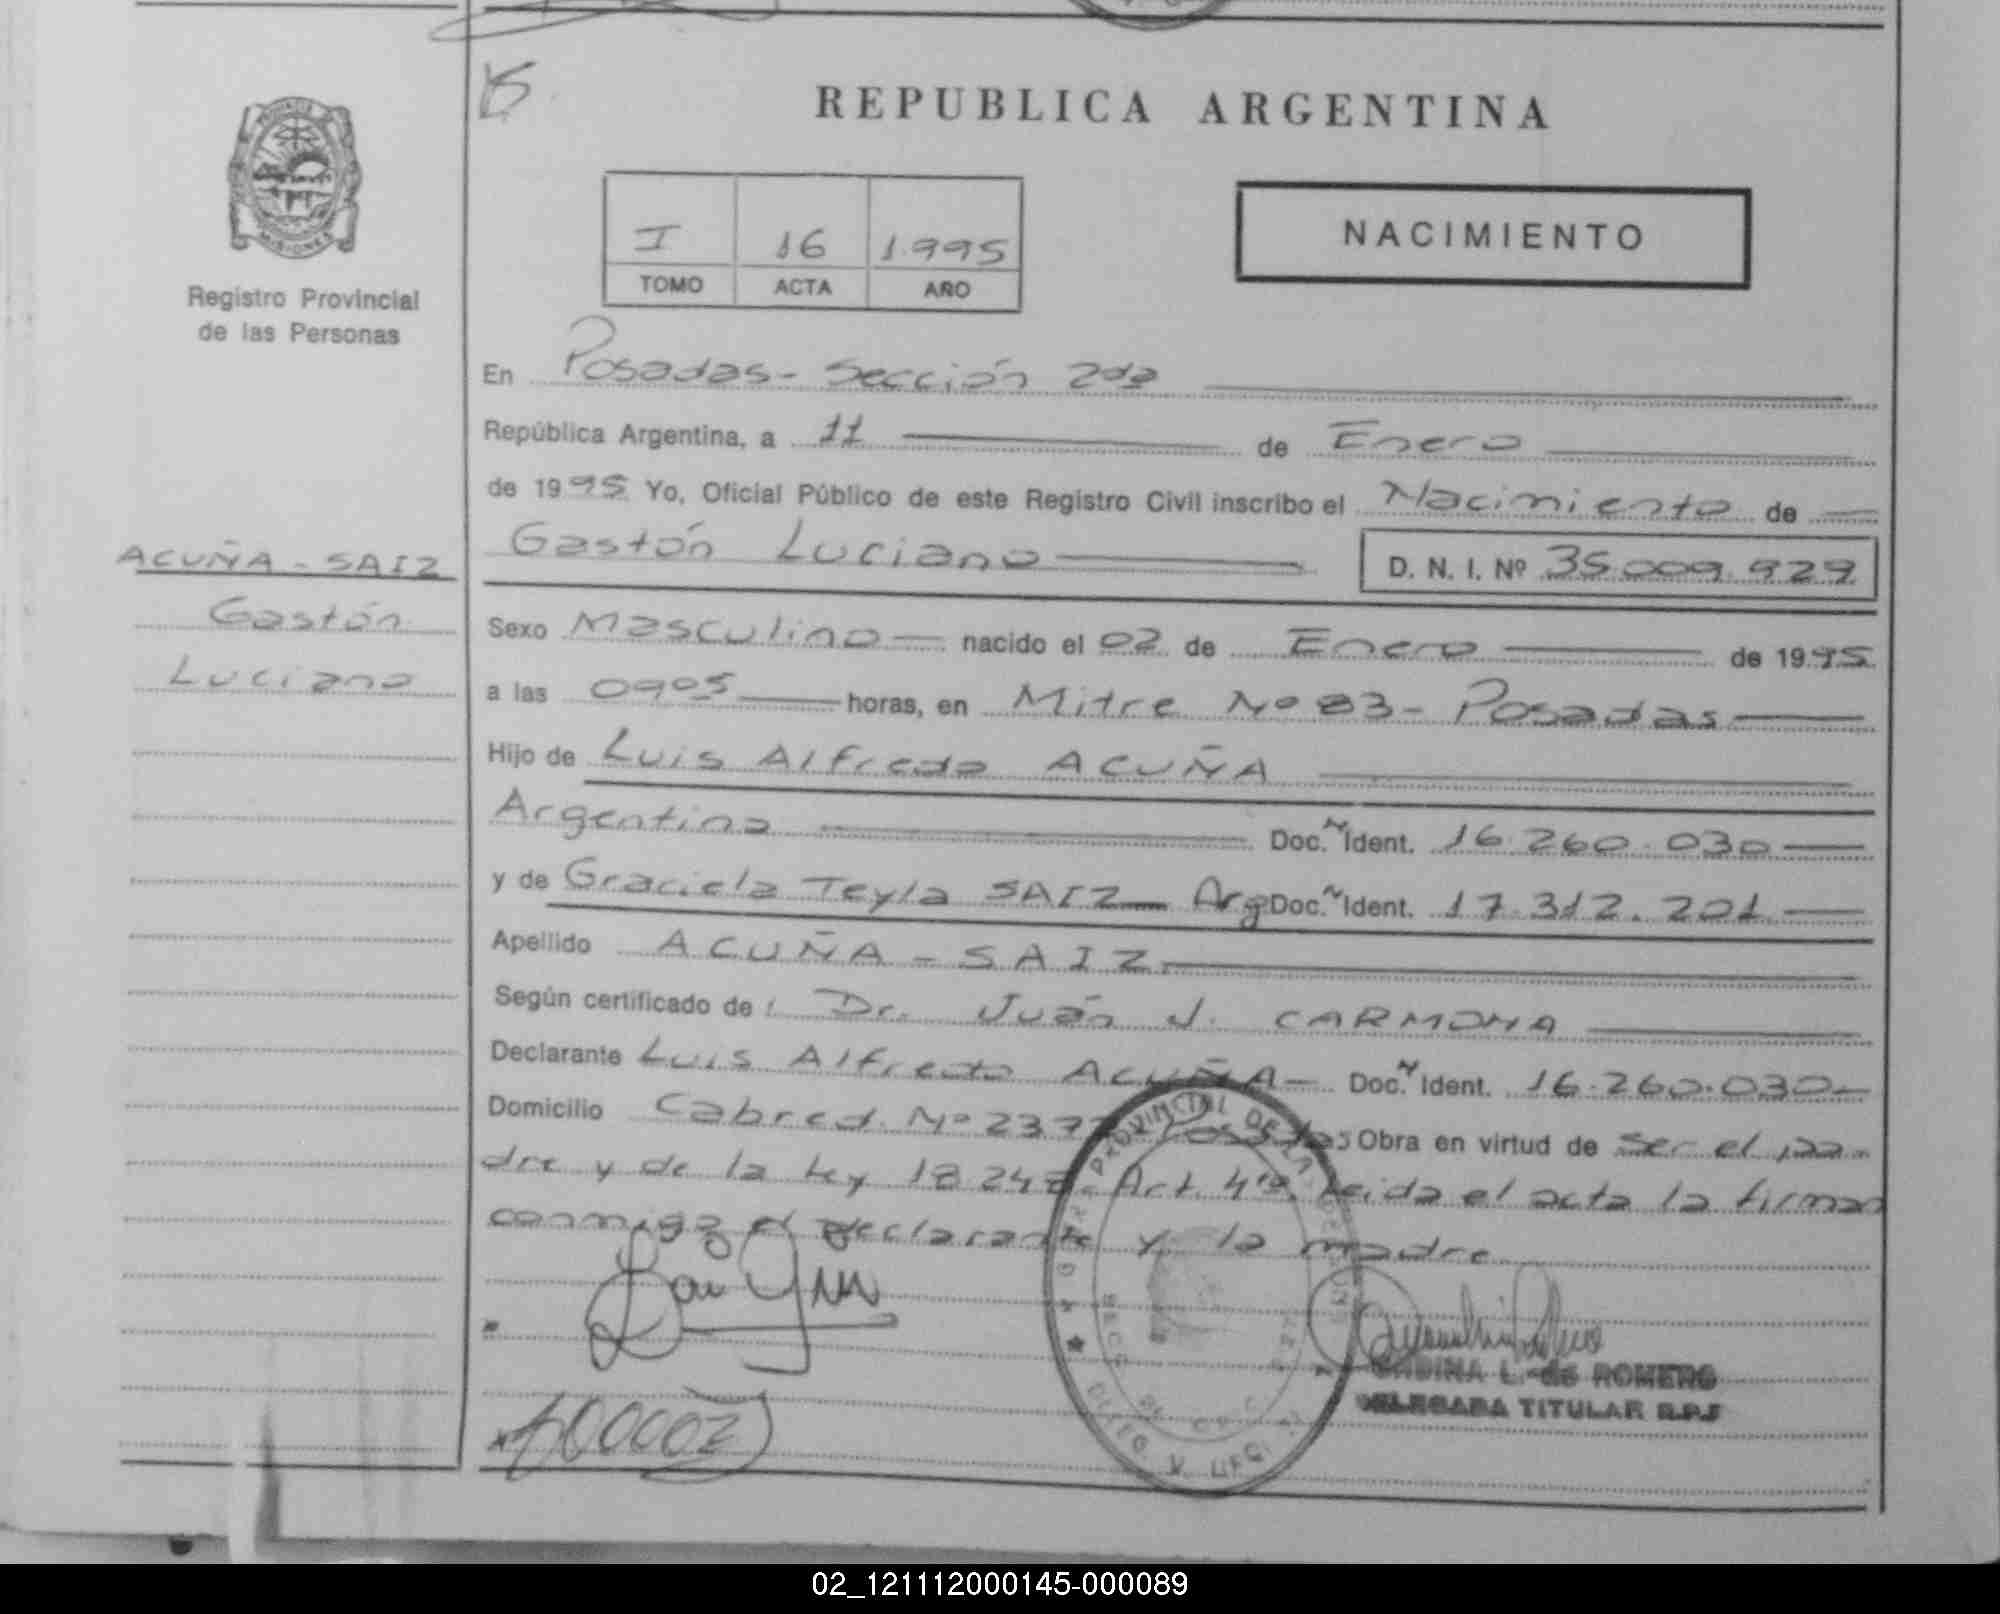 REPUBLICA ARGENTINA
PROVINCIA DE
MISIONES
Registro Provincial
de las Personas
I 16 1.995
TOMO ACTA AÑO
NACIMIENTO
En Posadas - Sección 2da
República Argentina, a 11 de Enero
de 1995 Yo, Oficial Público de este Registro Civil inscribo el Nacimiento de
Gastón Luciano D. N. I. Nº 35.009.929
ACUÑA - SAIZ
Gastón
Luciano
Sexo Masculino nacido el 02 de Enero de 1995
a las 0905 horas, en Mitre Nº 83 - Posadas
Hijo de Luis Alfredo ACUÑA
Argentino Doc. Ident. 16.260.030
y de Graciela Teyla SAIZ Arg Doc. Ident. 17.312.201
Apellido ACUÑA - SAIZ
Según certificado de: Dr. Juan J. CARMONA
Declarante Luis Alfredo ACUÑA - Doc. Ident. 16.260.030
Domicilio Cabred Nº 237 Posadas Obra en virtud de ser el pa-
dre y de la ley 18.248 Art. 4to. Leída el acta la firman
conmigo el declarante y la madre
PROVINCIAL DE LAS PERSONAS
L. de ROMERO
DELEGADA TITULAR R.P.P.
02_121112000145-000089